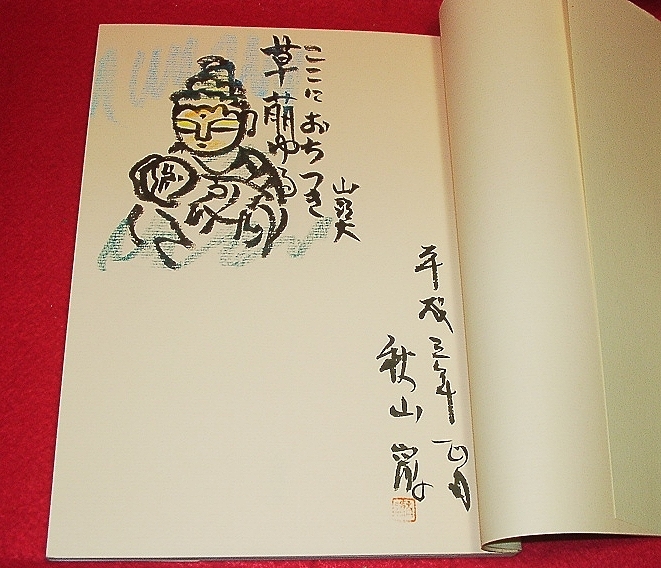 ここにおちつき
草萌ゆる
山頭火
平成三年 正月
秋山巌